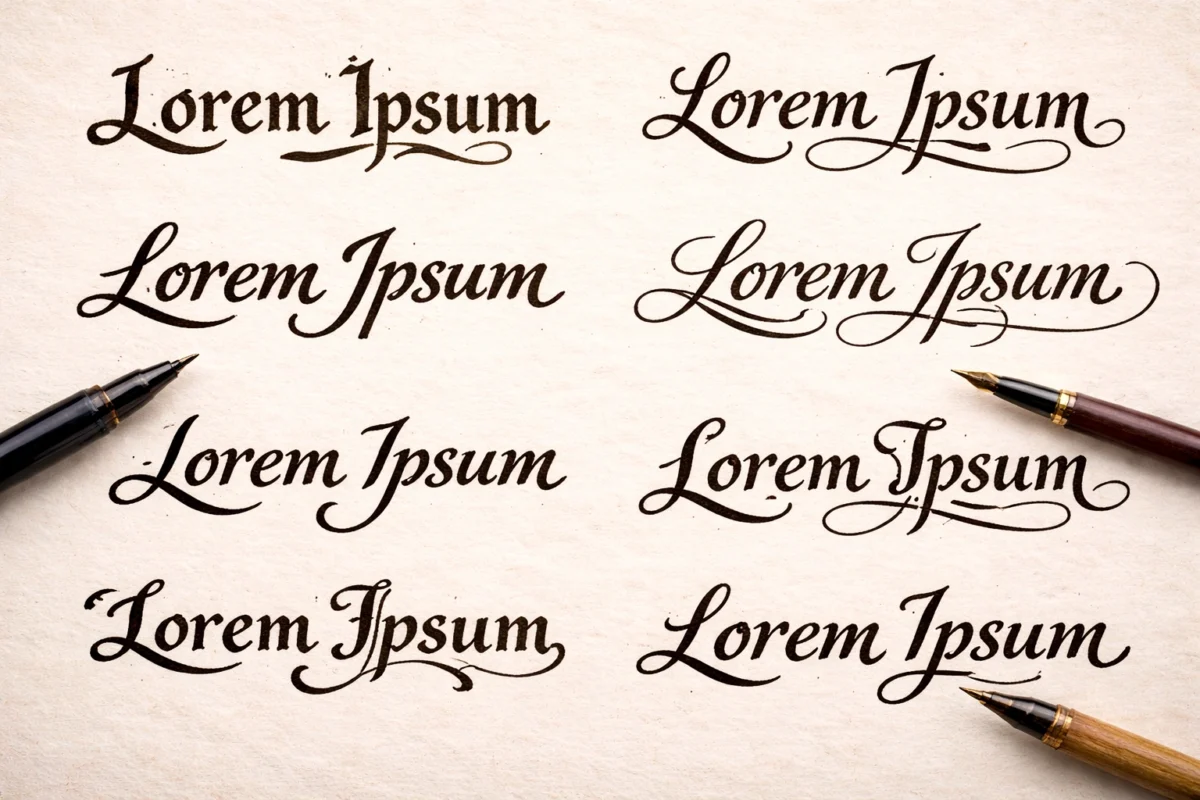 Lorem Ipsum
Lorem Ipsum
Lorem Ipsum
Lorem Ipsum
Lorem Ipsum
Lorem Ipsum
Lorem Ipsum
Lorem Ipsum